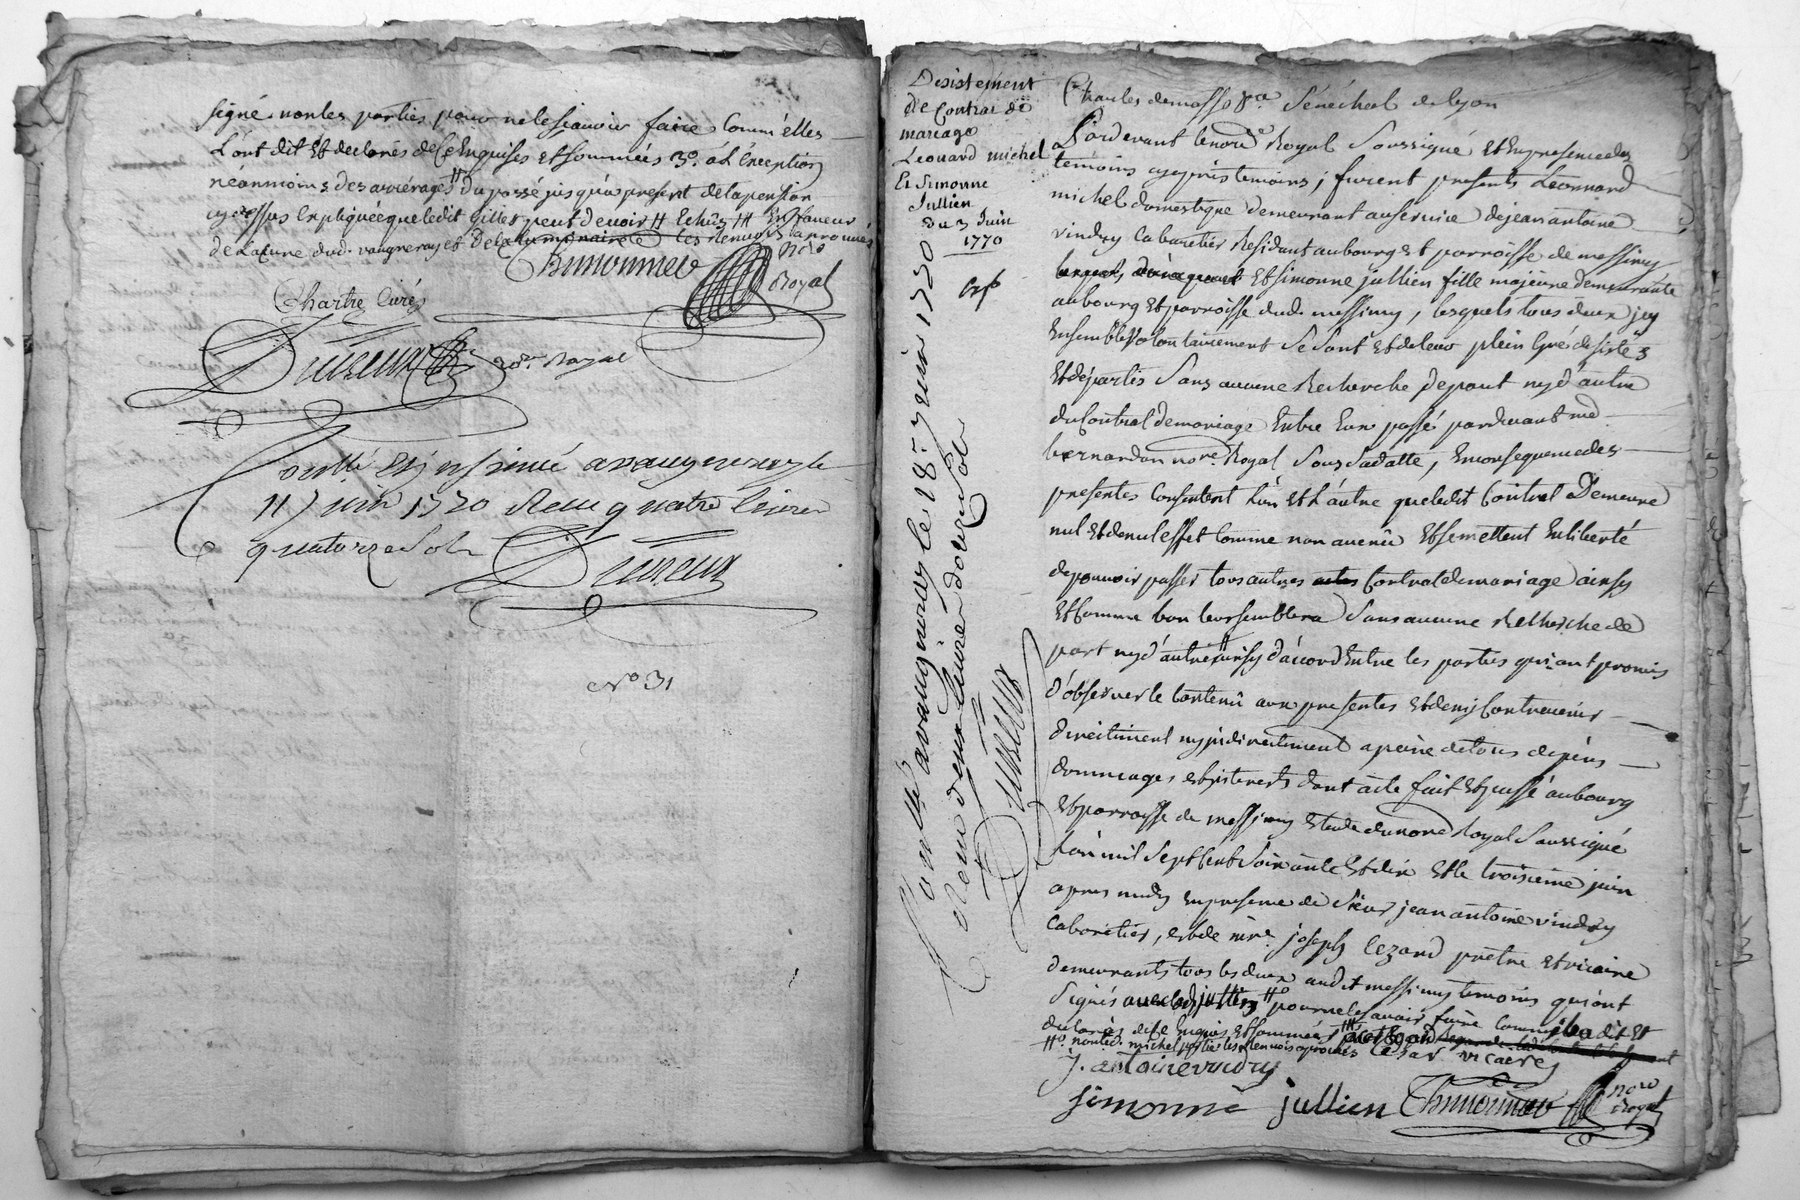 signé non les parties pour ne le scavoir faire comm'elles
l'ont dit et declarés de ce Enquises et sommées 3º. á L'éxception
néanmoins des arrérages # du passé jusqu'a present de la pension
cy dessus Expliquée que ledit Gillet peut devoir # Echûs #
de la Cure dud. vaugneray et de la luminairerie les renvois aprouvés
Nore
Royal
Chartre Curé
Duvreux Nore. Royal
Conllé Et insinué a vaugneray le
11 juin 1770 Recu quatre livres
quatorze sols
Duvreux
Nº 31
Desistement
de Contrat de
mariage
Léonard michel
Et Simonne
Jullien
du 3 Juin
1770
exp
Conllé a vaugneray le 18 juin 1770
Recu deux livres douze sols
Duvreux
Charles de masso Sénéchal de lyon
Pardevant le nore Royal Soussigné Et En presence des
témoins cy après temoins ; furent presents Léonnard
michel domestique demeurant au service de jean antoine
vindry Cabaretier Résidant au bourg Et parroisse de messimy
Et simonne jullien fille majeure demeurante
au bourg Et parroisse dud. messimy, lesquels tous deux jcy
Ensemble volontairement se sont Et de leur plein Gré desistés
Et départis Sans aucune Recherche de part ny d'autre
du Contrat de mariage Entre Eux passé pardevant me
bernardon nore. Royal Sous Sa datte, En consequence des
presentes Consentent L'un Et L'autre que ledit Contrat Demeure
nul Et de nul effet Comme non avenû Et se mettent En liberté
de pouvoir passer tous autres actes Contrat de mariage ainsy
Et Comme bon leur semblera Sans aucune Recherche de
part ny d'autre # ainsy d'accord Entre les parties qui ont promis
d'observer le Contenû aux presentes Et de ny Contrevenir
directement ny jndirectement a peine de tous depens
dommages et jnterests dont acte fait Et passé au bourg
Et parroisse de messimy Etude du nore Royal Soussigné
L'an mil Sept Cent Soixante Et dix Et le troisieme juin
apres midy En presence de Sieur jean antoine vindry
Cabaretier, et de mre. joseph Cezard prêtre Et vicaire
demeurants tous les deux audit messimy temoins qui ont
Signés avec lad. jullien # pour ne le savoir faire Comm'il a dit Et
declaré de ce Enquis Et Sommés
# non led. michel partie les renvois aprouvés Cesar vicaire
j. antoine vindry
simonne jullien
nore
Royal